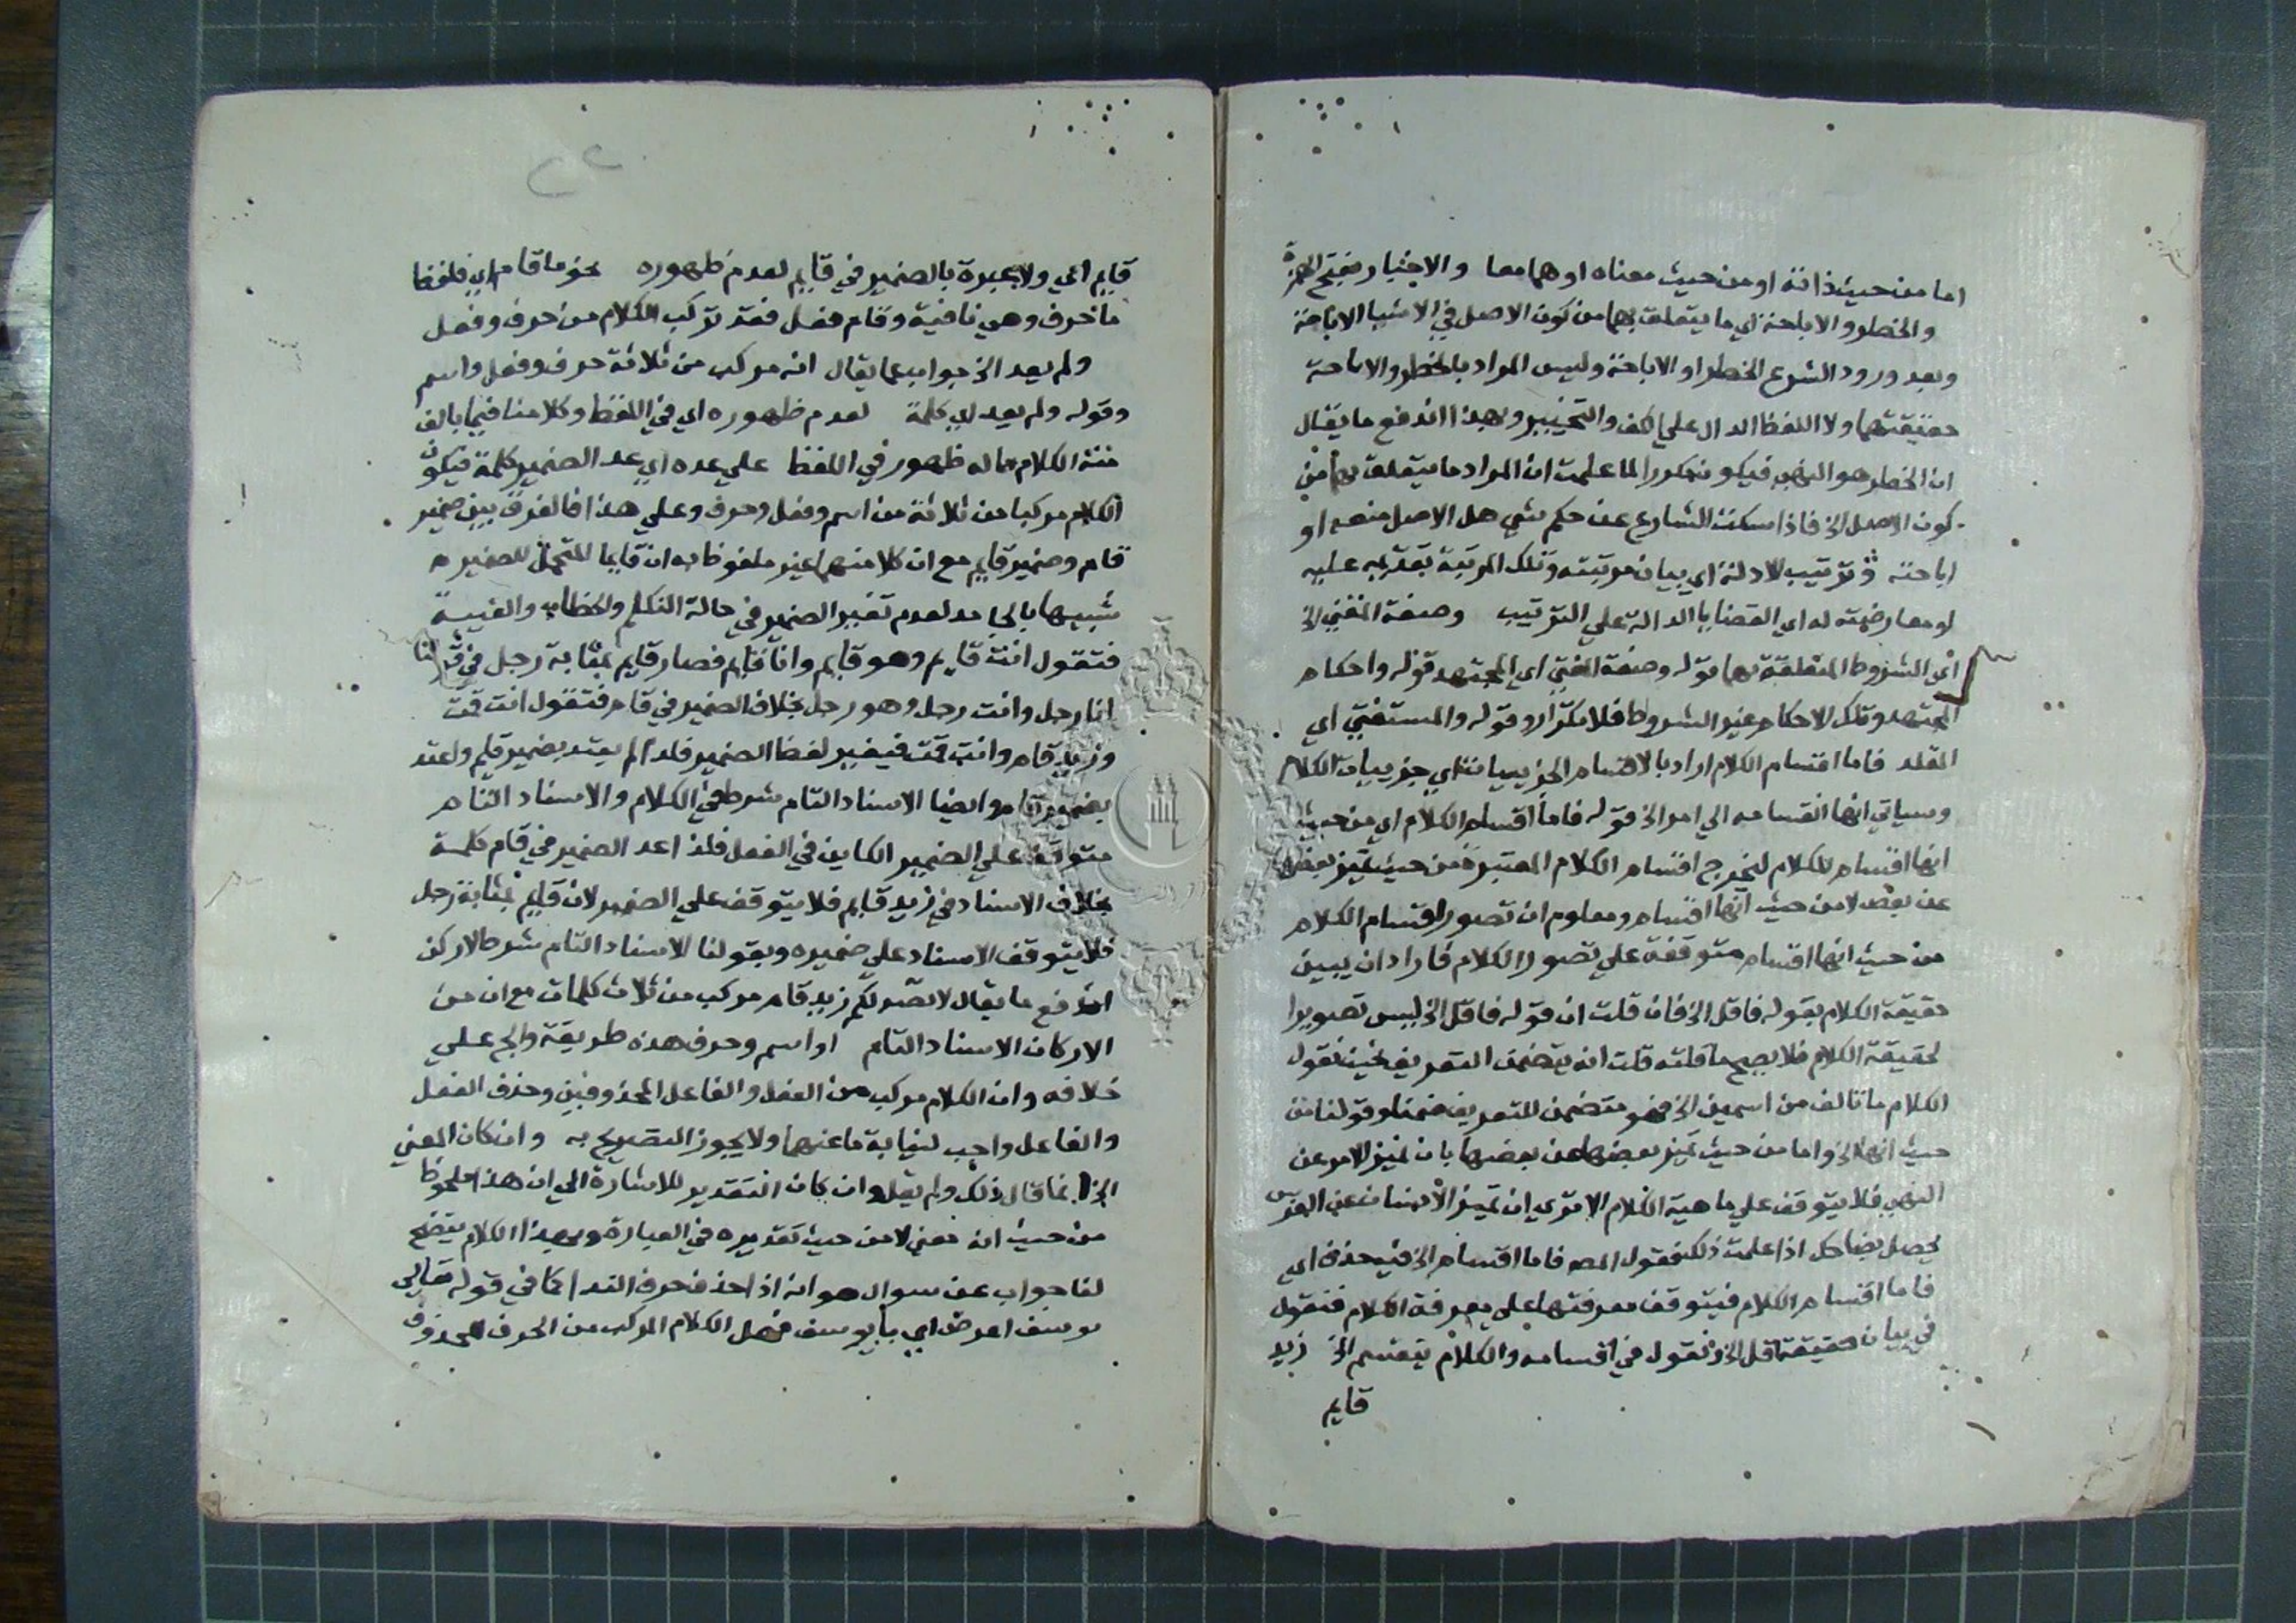 اما من حيث ذاته او من حيث معناه او هما معا والاخبار بفتح الهمزة
والحظر والاباحة اي ما يتعلق بهما من كون الاصل في الاشيا الاباحة
وبعد ورود الشرع الحظر او الاباحة وليس المراد بالحظر والاباحة
حقيقتهما ولا اللفظ الدال علي الكف والتخيير وبهذا اندفع ما يقال
ان الحظر هو النهي فيكون مكررا لما علمت ان المراد ما يتعلق بهما من
كون الاصل الخ فاذا سكت الشارع عن حكم شي هل الاصل منعه او
اباحته وترتيب الادلة اي بيان مرتبته وتلك المرتبة بتقديمه عليه
او معارضته له اي القضايا الدالة علي الترتيب وصفة المفتي الخ
اي الشروط المتعلقة بهما قوله وصفة المفتي اي المجتهد قوله واحكام
المجتهد وتلك الاحكام غير الشروط فلا تكرار وقوله والمستفتي اي
المقلد فاما اقسام الكلام اراد بالاقسام الجزييات اي جزييات الكلام
وسياتي انها انقسامه الي امر الخ قوله فاما اقسام الكلام اي من حيث
انها اقسام للكلام ليخرج اقسام الكلام المعتبرة من حيث تميز بعضها
عن بعض لا من حيث انها اقسام ومعلوم ان تصور اقسام الكلام
من حيث انها اقسام متوقفة علي تصور الكلام فاراد ان يبين
حقيقة الكلام بقوله فاقل الخ فان قلت ان قوله فاقل الخ ليس تصويرا
لحقيقة الكلام فلا يصح ما قلته قلت انه يتضمن التعريف لحيث نقول
الكلام ما تالف من اسمين الخ فهو متضمن للتعريف ضمنا وقولنا من
حيث انها الخ واما من حيث تميز بعضها عن بعضها بان تميز الامر عن
النهي فلا يتوقف علي ماهية الكلام الا تري ان تميز الانسان عن الفرس
يحصل بضاحك اذا علمت ذلك فقول المص فاما اقسام الخ فيه حذف اي
فاما اقسام الكلام فيتوقف معرفتها علي معرفة الكلام فنقول
في بيان حقيقة اقل الخ ونقول في اقسامه والكلام ينقسم الخ زيد
قايم
قايم اي ولا عبرة بالضمير في قايم لعدم ظهوره نحو ما قام اي فلفظ
ما حرف وهي نافية وقام فعل فقد تركب الكلام من حرف وفعل
ولم يعد الخ جواب عما يقال انه مركب من ثلاثة حرف وفعل واسم
وقوله ولم يعد اي كلمة لعدم ظهوره اي في اللفظ وكلامنا فيما يالف
منه الكلام مما له ظهور في اللفظ علي عده اي عد الضمير كلمة فيكون
الكلام مركبا من ثلاثة من اسم وفعل وحرف وعلي هذا فالفرق بين ضمير
قام وضمير قايم مع ان كلا منهما غير ملفوظ به ان قايما المتحمل للضمير
شبيها بالجامد لعدم تغير الضمير في حالة التكلم والخطاب والغيبة
فتقول انت قايم وهو قايم وانا قايم فصار قايم بمثابة رجل في قولنا
انا رجل وانت رجل وهو رجل بخلاف الضمير في قام فتقول انت قمت
وزيد قام وانت قمت فيغير لفظ الضمير فلذا لم يعتد بضمير قايم واعتد
بضمير قام وايضا الاسناد التام شرط في الكلام والاسناد التام
متوقف علي الضمير الكاين في الفعل فلذا عد الضمير في قام كلمة
بخلاف الاسناد في زيد قايم فلا يتوقف علي الضمير لان قايم بمثابة رجل
فلا يتوقف الاسناد علي ضميره وبقولنا الاسناد التام شرط لا ركن
اندفع ما يقال لا نصر لكم زيد قام مركب من ثلاث كلمات مع ان من
الاركان الاسناد التام او اسم وحرف هذه طريقة والجم علي
خلافه وان الكلام مركب من الفعل والفاعل المحذوفين وحذف الفعل
والفاعل واجب لنيابة ما عنهما ولا يجوز التصريح به وان كان المعني
الخ انما قال ذلك ولم يقل وان كان التقدير للاشارة الي ان هذا ملحوظ
من حيث انه معني لا من حيث تقديره في العبارة وبهذا الكلام يتضح
لنا جواب عن سوال هو انه اذا حذف حرف الندا كما في قوله تعالي
يوسف اعرض اي يا يوسف فهل الكلام المركب من الحرف المحذوف